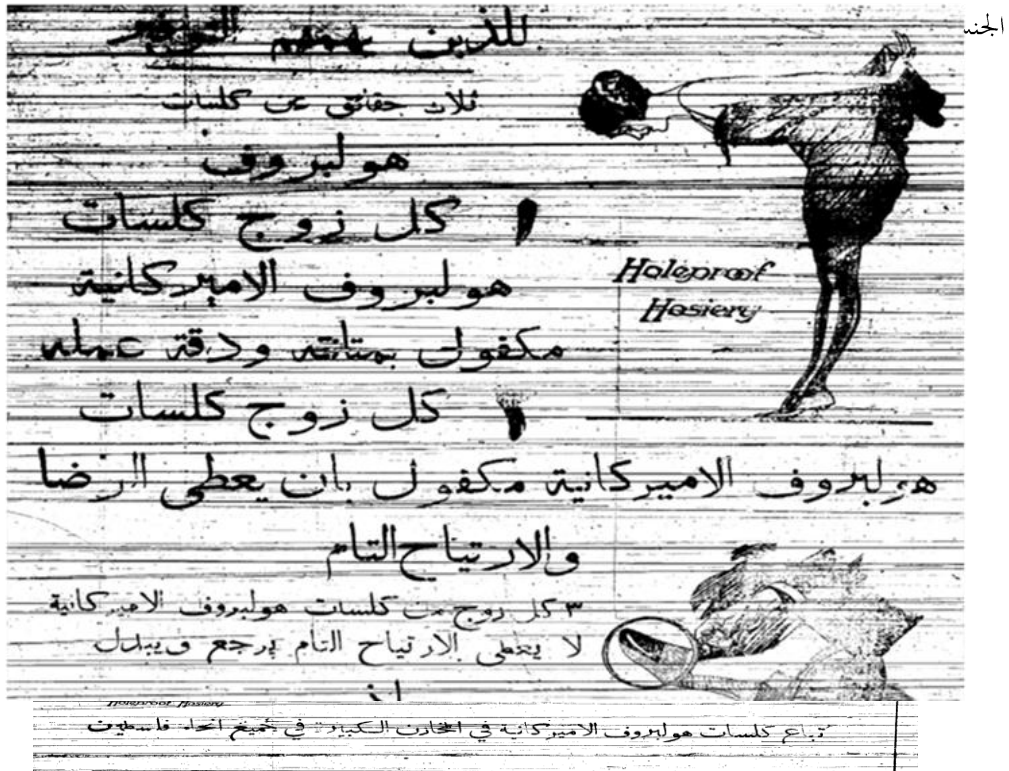 الجند
للذين
ثلاث حقائق عن كلسات
هولبروف
١ كل زوج كلسات
هولبروف الاميركانية
مكفول بمتانته ودقة عمله
Holeproof
Hosiery
٢ كل زوج كلسات
هولبروف الاميركانية مكفول بان يعطي الرضا
والارتياح التام
٣ كل زوج من كلسات هولبروف الاميركانية
لا يعطي الارتياح التام يرجع ويبدل
Holeproof Hosiery
تباع كلسات هولبروف الاميركانية في المخازن الكبيرة في جميع انحاء فلسطين